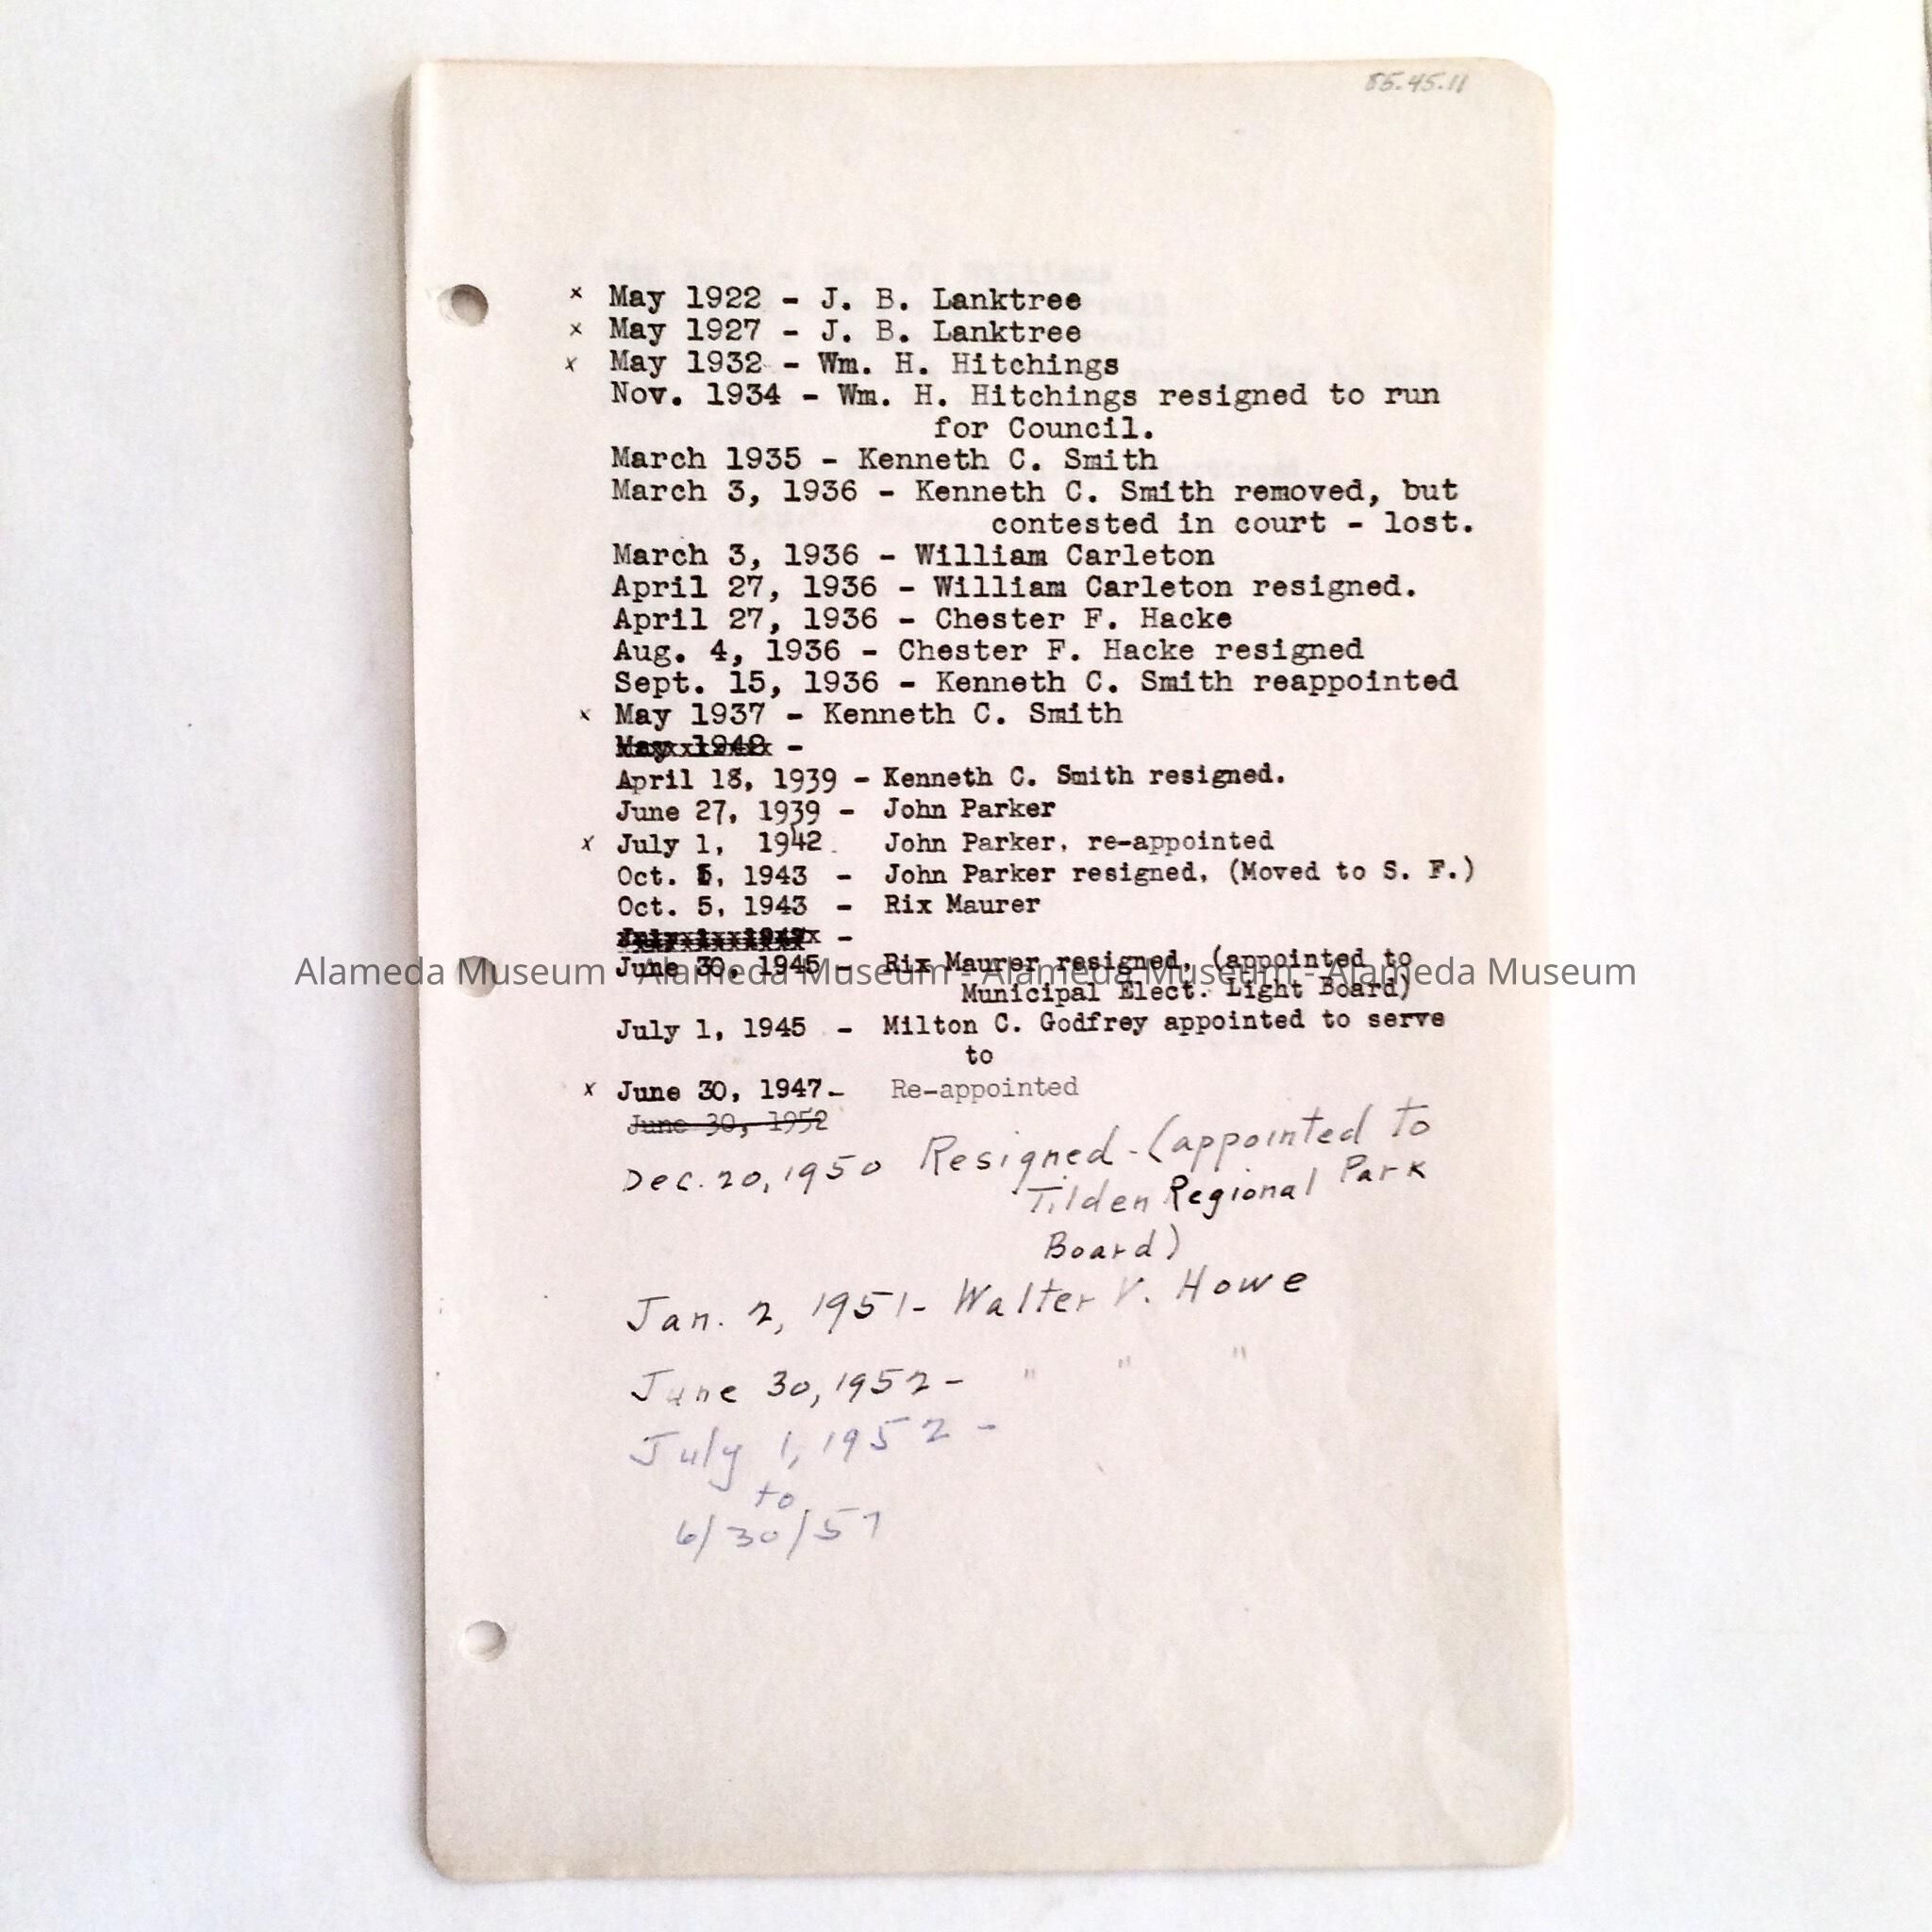 85.45.11
x May 1922 - J. B. Lanktree
x May 1927 - J. B. Lanktree
x May 1932 - Wm. H. Hitchings
Nov. 1934 - Wm. H. Hitchings resigned to run
for Council.
March 1935 - Kenneth C. Smith
March 3, 1936 - Kenneth C. Smith removed, but
contested in court - lost.
March 3, 1936 - William Carleton
April 27, 1936 - William Carleton resigned.
April 27, 1936 - Chester F. Hacke
Aug. 4, 1936 - Chester F. Hacke resigned
Sept. 15, 1936 - Kenneth C. Smith reappointed
x May 1937 - Kenneth C. Smith
May 1942 -
April 18, 1939 - Kenneth C. Smith resigned.
June 27, 1939 - John Parker
x July 1, 1942. John Parker, re-appointed
Oct. 5, 1943 - John Parker resigned, (Moved to S. F.)
Oct. 5, 1943 - Rix Maurer
-
June 30, 1945 - Rix Maurer resigned, (appointed to
Alameda Museum - Alameda Museum - Alameda Museum - Alameda Museum
Municipal Elect. Light Board)
July 1, 1945 - Milton C. Godfrey appointed to serve
to
x June 30, 1947- Re-appointed
June 30, 1952
Dec. 20, 1950 Resigned - (appointed to
Tilden Regional Park
Board)
Jan. 2, 1951- Walter V. Howe
June 30, 1952 - " " "
July 1, 1952 -
to
6/30/57